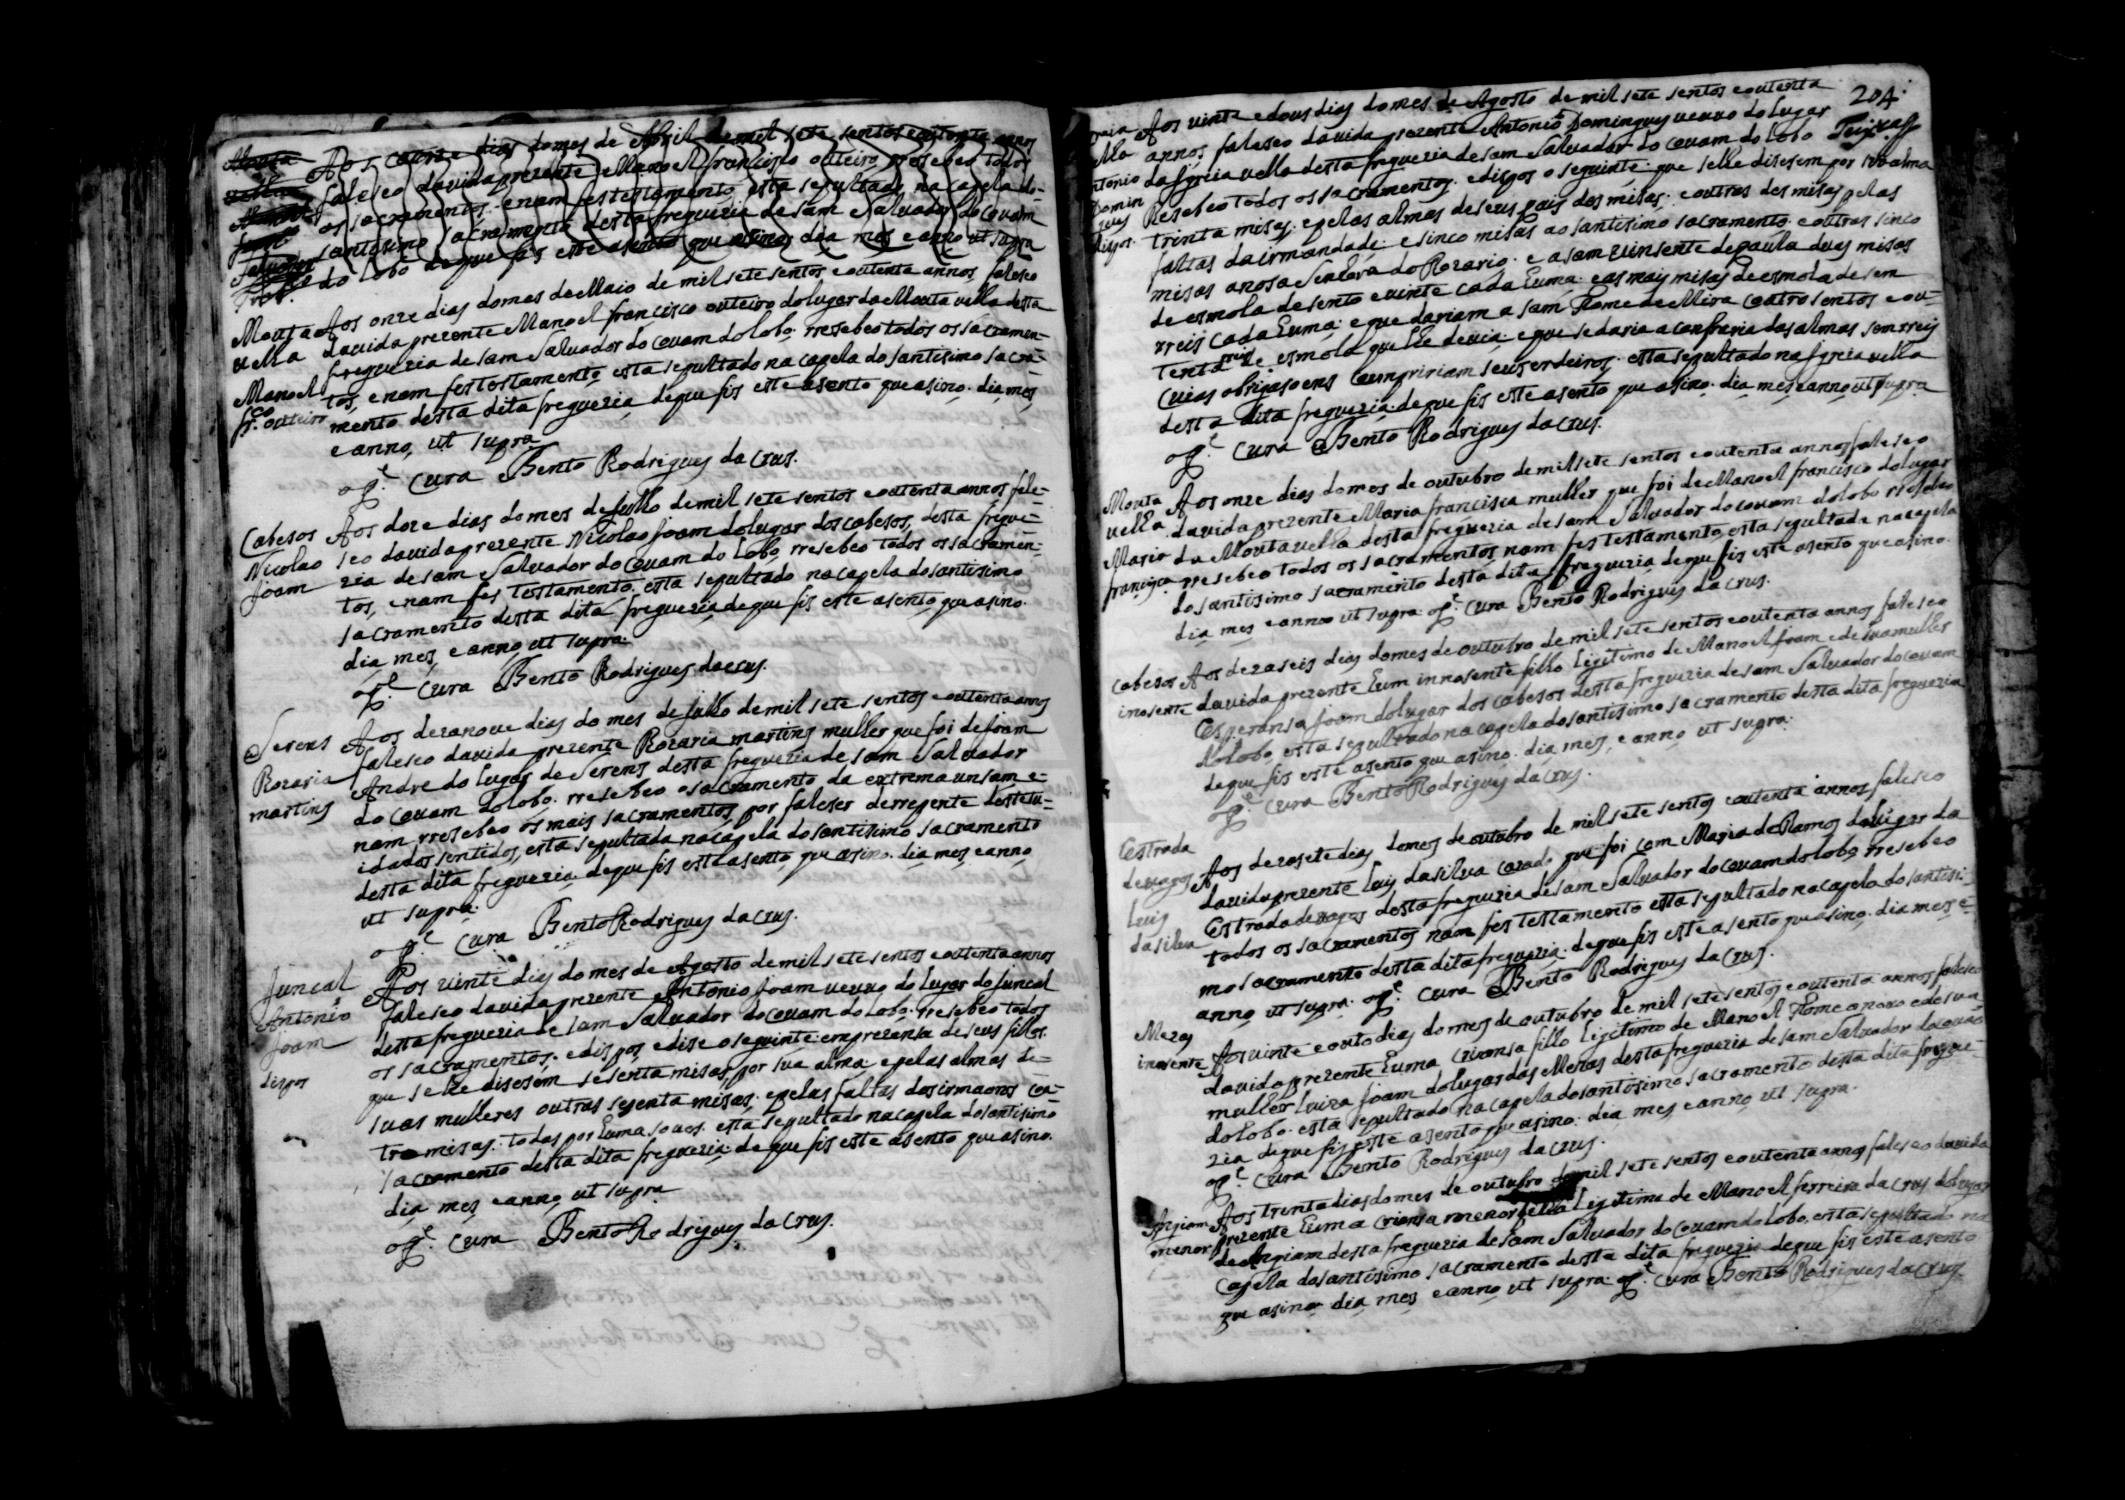 Aos catorze dias do mes de Abril de mil sete sentos e outenta annos
faleseo da vida prezente Manoel francisco outeiro rresebeo todos
os sacramentos e nam fes testamento esta sepultado na capela do
santisimo sacramento desta freguezia de sam Salvador do Covam
do lobo de que fis este asento que asino dia mes e anno ut supra
Mouta vella
Manoel fr.co outeiro
Aos onze dias do mes de Maio de mil sete sentos e outenta annos faleseo
da vida prezente Manoel francisco outeiro do lugar da Mouta vella desta
freguezia de sam Salvador do Covam do lobo rresebeo todos os sacramen-
tos, e nam fes testamento esta sepultado na capela do santisimo sacra-
mento desta dita freguezia de que fis este asento que asino. dia mes
e anno, ut supra
o p.e Cura Bento Rodrigues da Crus.
Cabesos
Nicolao Joam
Aos doze dias do mes de Julho de mil sete sentos e outenta annos fale-
seo da vida prezente Nicolao Joam do lugar dos cabesos, desta fregue-
zia de sam Salvador do Covam do Lobo, rresebeo todos os sacramen-
tos, e nam fes testamento. esta sepultado na capela do santisimo
sacramento desta dita freguezia de que fis este asento que asino.
dia mes e anno ut supra.
o p.e Cura Bento Rodrigues da crus.
Serens
Rozaria martins
Aos dezanove dias do mes de Julho de mil sete sentos e outenta annos
faleseo da vida prezente Rozaria martins mulher que foi de Joam
Andre do lugar de Serens desta freguezia de sam Salvador
do Covam do lobo. rresebeo o sacramento da extrema unsam e
nam rresebeo os mais sacramentos, por faleser de rrepente destetu-
idados sentidos, esta sepultada na capela do santisimo sacramento
desta dita freguezia de que fis este asento, que asino. dia mes e anno
ut supra.
o p.e Cura Bento Rodrigues da crus.
Juncal
Antonio Joam
dispos
Aos vinte dias do mes de Agosto de mil sete sentos e outenta annos
faleseo da vida prezente Antonio Joam veuvo do lugar do Juncal
desta freguezia de sam Salvador do Covam do Lobo. rresebeo todos
os sacramentos. e dispos, e dise o seguinte em prezensa de seus filhos.
que se lhe disesem sesenta misas por sua alma e pelas almas de
suas mulheres outras sesenta misas. e pelas faltas dos irmaons coa-
tro misas. todas por huma so ves. esta sepultado na capela do santisimo
sacramento desta dita freguezia de que fis este asento que asino.
dia mes e anno, ut supra
o p.e Cura Bento Rodrigues da Crus.
204.
Antonio Domingues
dispos.
Aos vinte e dous dias do mes de Agosto de mil sete sentos e outenta
annos faleseo da vida prezente Antonio Domingues veuvo do lugar
da Igreia vella desta freguezia de sam Salvador do Covam do Lobo
Resebeo todos os sacramentos. e dispos o seguinte. que se lhe disesem por sua alma
trinta misas. e pelas almas de seus pais dos misas. e outras des misas pelas
faltas da irmandade. e sinco misas ao santisimo sacramento e outras sinco
misas a nosa Senhora do Rozario. e a sam Vinsente de paula duas misas
de esmola de sento e vinte cada huma. e as mais misas de esmola de sem
rreis cada huma. e que dariam a sam Thome de Mira coatro sentos e ou-
tenta rreis de esmola que lhe devia e que se daria a confraria das almas sem rreis
cuias obrigasoens cumpririam seus erdeiros. esta sepultado na Igreia vella
desta dita freguezia. de que fis este asento que asino. dia mes e anno ut supra
o p.e Cura Bento Rodrigues da Crus.
Mouta vella.
Maria francisca
Aos onze dias do mes de outubro de mil sete sentos e outenta annos faleseo
da vida prezente Maria francisca mulher que foi de Manoel francisco do lugar
da Mouta vella desta freguezia de sam Salvador do Covam do lobo rresebeo
todos os sacramentos nam fes testamento esta sepultada na capela
do santisimo sacramento desta dita freguezia de que fis este asento que asino.
dia mes e anno ut supra. o p.e Cura Bento Rodrigues da Crus.
Cabesos
inosente
Aos dezaseis dias do mes de outubro de mil sete sentos e outenta annos faleseo
da vida prezente hum innosente filho legitimo de Manoel Joam e de sua mulher
Esperansa Joam do lugar dos Cabesos desta freguezia de sam Salvador do Covam
do lobo, esta sepultado na capela do santisimo sacramento desta dita freguezia
de que fis este asento que asino. dia mes, e anno ut supra.
o p.e Cura Bento Rodrigues da Crus.
Estrada de vagos
Luis da silva
Aos dezasete dias do mes de outubro de mil sete sentos e outenta annos faleseo
da vida prezente Luis da silva cazado que foi com Maria de Ramos do lugar da
Estrada de vagos desta freguezia de sam Salvador do Covam do lobo, rresebeo
todos os sacramentos nam fes testamento esta sepultado na capela do santisi-
mo sacramento desta dita freguezia. de que fis este asento que asino. dia mes e
anno ut supra. o p.e Cura Bento Rodrigues da Crus.
Mezas
inosente
Aos vinte e outo dias do mes de outubro de mil sete sentos e outenta annos faleseo
da vida prezente huma criansa filho Legitimo de Manoel Thome o novo e de sua
mulher Luiza Joam do lugar das Mezas desta freguezia de sam Salvador do Covão
do lobo. esta sepultado na capela do santisimo sacramento desta dita fregue-
zia de que fis este asento que asino. dia mes e anno ut supra.
o p.e Cura Bento Rodrigues da Crus.
menor
Aos trinta dias do mes de outubro de mil sete sentos e outenta annos faleseo da vida
prezente huma criansa menor Legitima de Manoel ferreira da Crus do lugar
desta freguezia de sam Salvador do Covam do Lobo. esta sepultado na
Capela do santisimo sacramento desta dita freguezia de que fis este asento
que asino. dia mes e anno ut supra. o p.e Cura Bento Rodrigues da Crus